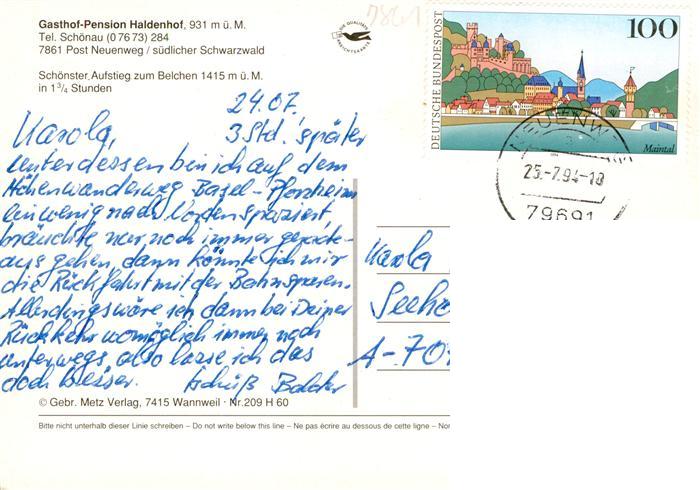 Gasthof-Pension Haldenhof, 931 m ü. M.
Tel. Schönau (0 76 73) 284
7861 Post Neuenweg / südlicher Schwarzwald
Schönster Aufstieg zum Belchen 1415 m ü. M.
in 1¾ Stunden
7861
DEUTSCHE BUNDESPOST
100
Maintal
25.-7.94-18
79691
24.07.
Karola,
3 Std. später
unterdessen bin ich auf dem
Höhenwanderweg Basel-Pforzheim
ein wenig nach Norden spaziert,
bräuchte nur noch immer gerade-
aus gehen, dann könnte ich mir
die Rückfahrt mit der Bahn sparen.
Allerdings wäre ich dann bei Deiner
Rückkehr womöglich immer noch
unterwegs, also lasse ich das
doch besser.
tschüß
Karola
Seeho
A-70
© Gebr. Metz Verlag, 7415 Wannweil · Nr. 209 H 60
Bitte nicht unterhalb dieser Linie schreiben – Do not write below this line – Ne pas écrire au dessous de cette ligne – Nor